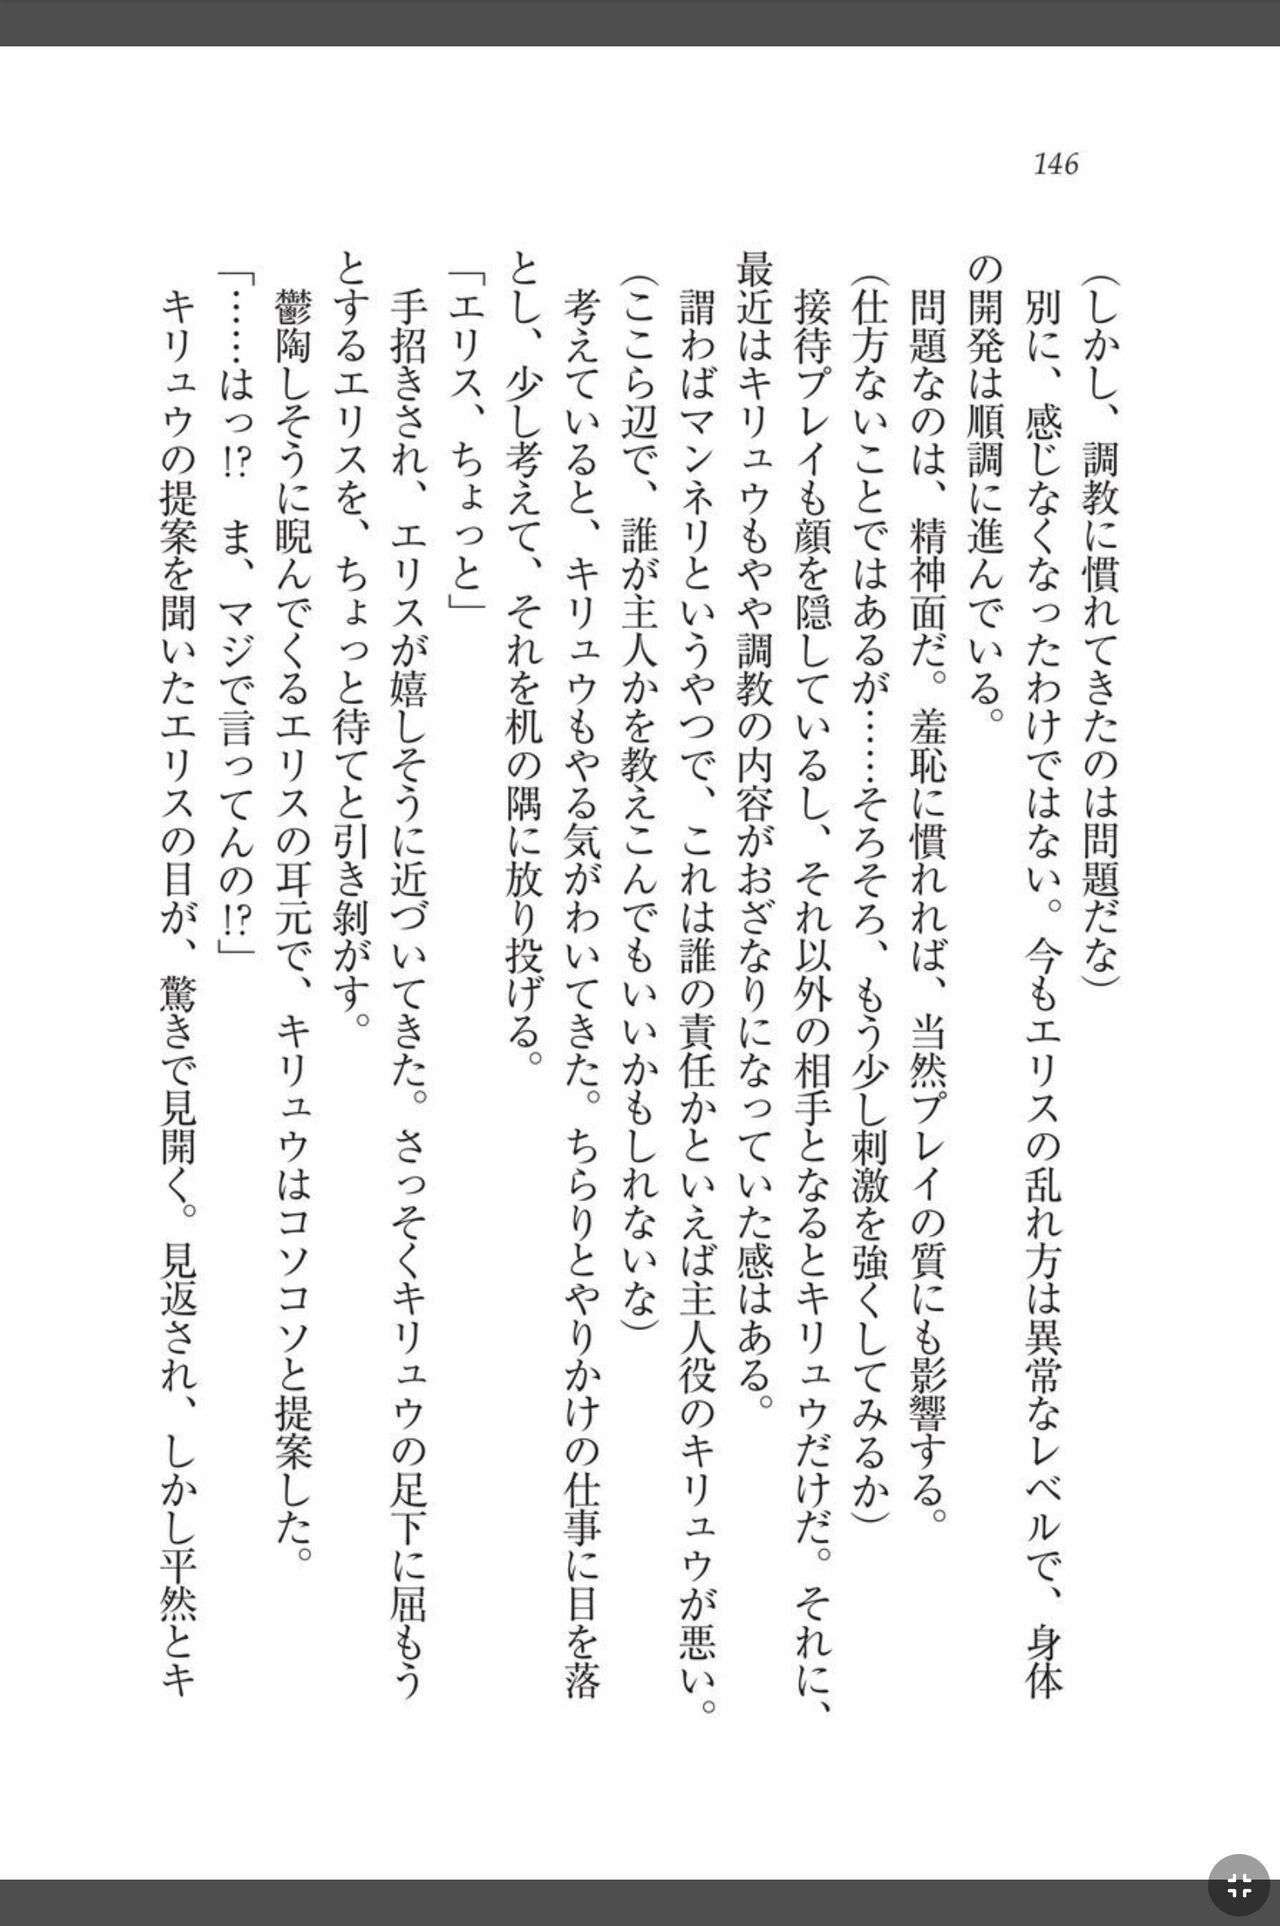 146
（しかし、調教に慣れてきたのは問題だな）
別に、感じなくなったわけではない。今もエリスの乱れ方は異常なレベルで、身体
の開発は順調に進んでいる。
問題なのは、精神面だ。羞恥に慣れれば、当然プレイの質にも影響する。
（仕方ないことではあるが……そろそろ、もう少し刺激を強くしてみるか）
接待プレイも顔を隠しているし、それ以外の相手となるとキリュウだけだ。それに、
最近はキリュウもやや調教の内容がおざなりになっていた感はある。
謂わばマンネリというやつで、これは誰の責任かといえば主人役のキリュウが悪い。
（ここら辺で、誰が主人かを教えこんでもいいかもしれないな）
考えていると、キリュウもやる気がわいてきた。ちらりとやりかけの仕事に目を落
とし、少し考えて、それを机の隅に放り投げる。
「エリス、ちょっと」
手招きされ、エリスが嬉しそうに近づいてきた。さっそくキリュウの足下に屈もう
とするエリスを、ちょっと待てと引き剝がす。
鬱陶しそうに睨んでくるエリスの耳元で、キリュウはコソコソと提案した。
「……はっ!?　ま、マジで言ってんの!?」
キリュウの提案を聞いたエリスの目が、驚きで見開く。見返され、しかし平然とキ